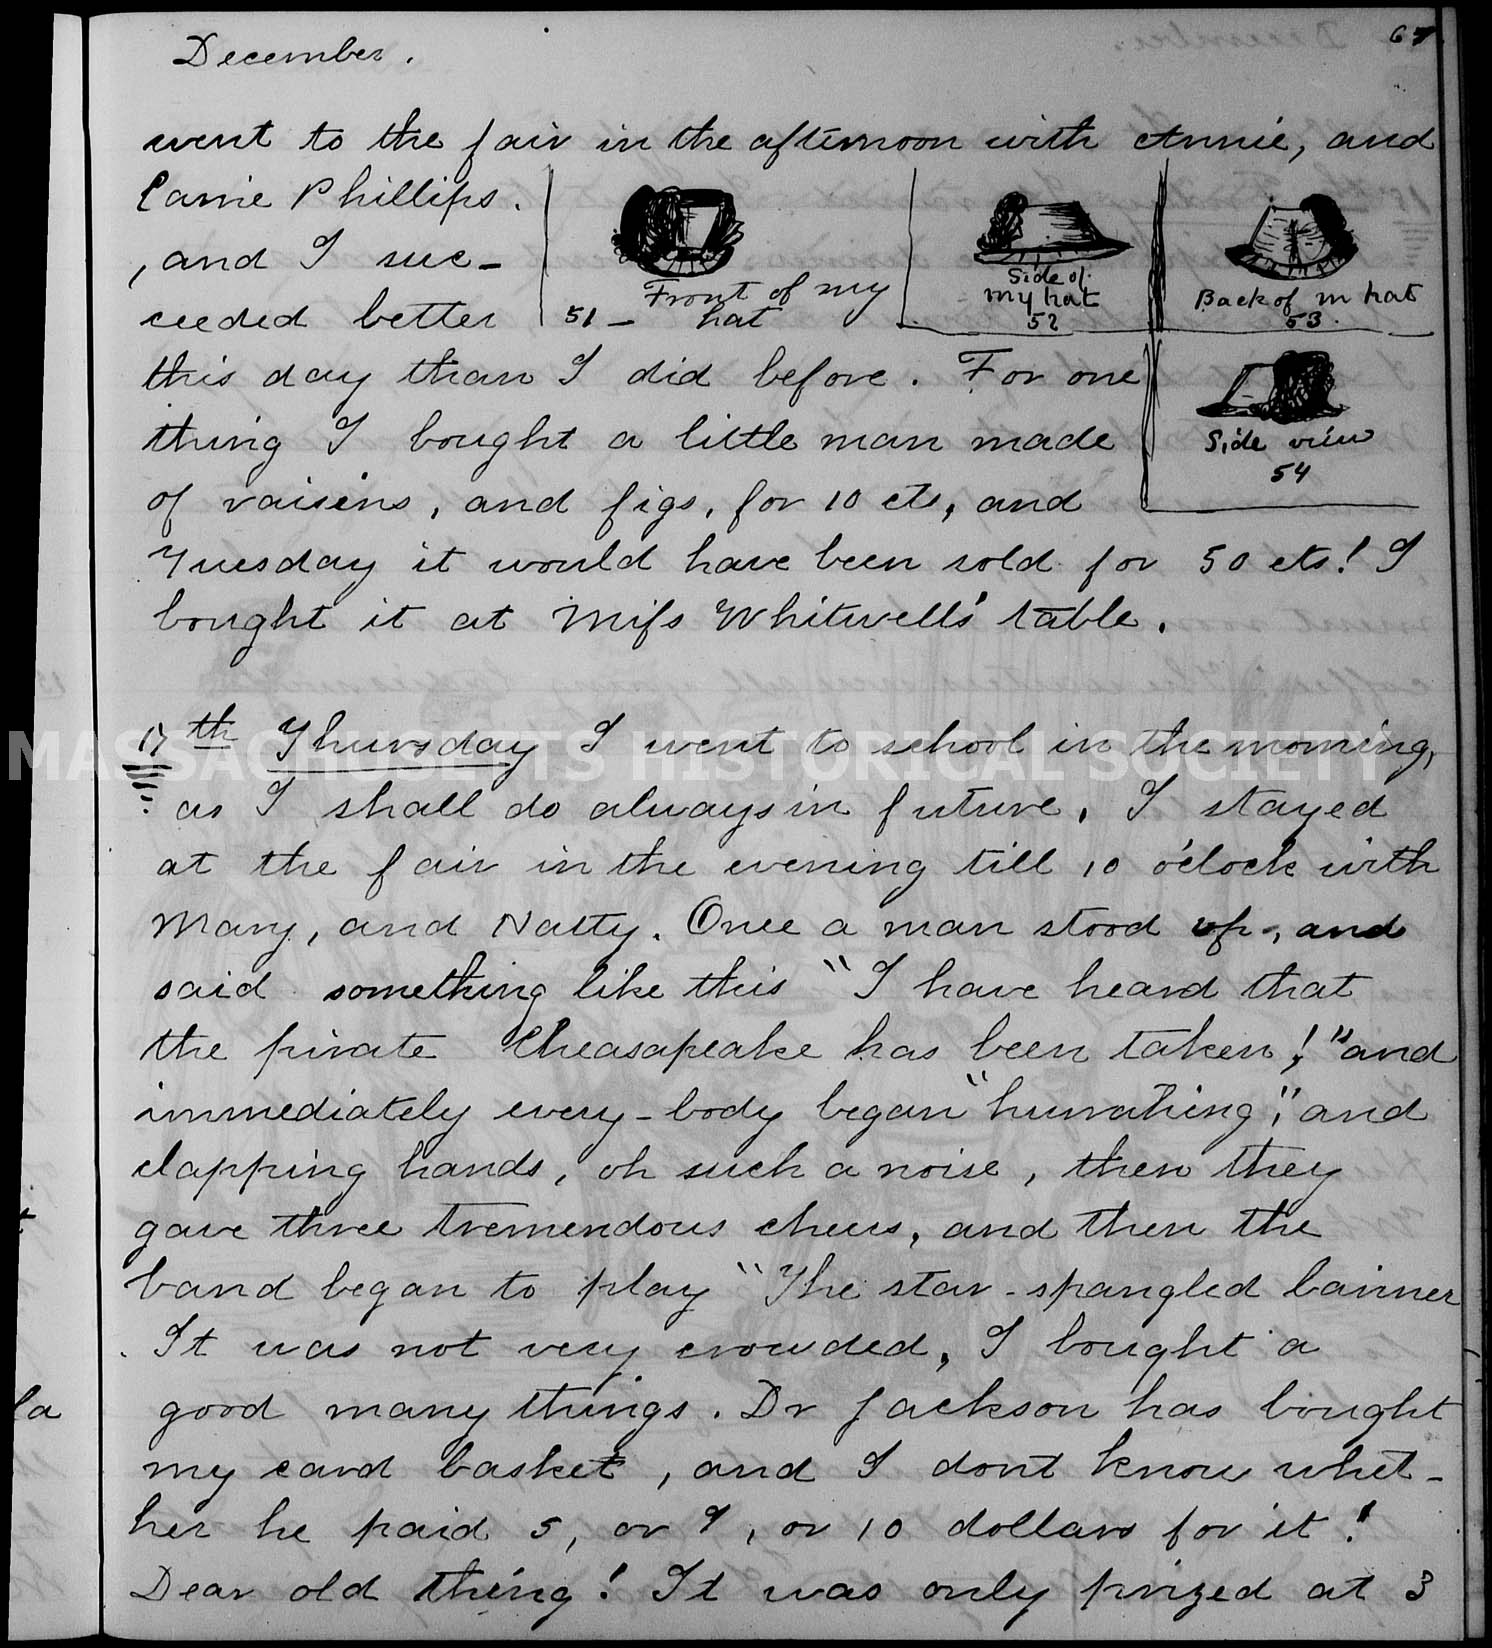 December.
67
went to the fair in the afternoon with Annie, and
Carrie Phillips.
, and I suc-
ceeded better
Front of my
51 - hat
Side of
my hat
52
Back of m hat
53.
this day than I did before. For one
thing I bought a little man made
Side view
54
of raisins, and figs, for 10 cts, and
Tuesday it would have been sold for 50 cts! I
bought it at Miss Whitwell's table.
MASSACHUSETTS HISTORICAL SOCIETY
17th Thursday I went to school in the morning,
as I shall do always in future. I stayed
at the fair in the evening till 10 o'clock with
Mary, and Natty. Once a man stood up, and
said something like this "I have heard that
the pirate Cheasapeake has been taken!" and
immediately every-body began "hurrahing", and
clapping hands, oh such a noise, then they
gave three tremendous cheers, and then the
band began to play "The star-spangled banner
. It was not very crowded, I bought a
good many things. Dr Jackson has bought
my card basket, and I dont know whet-
her he paid 5, or 9, or 10 dollars for it!
Dear old thing! It was only prized at 3
la